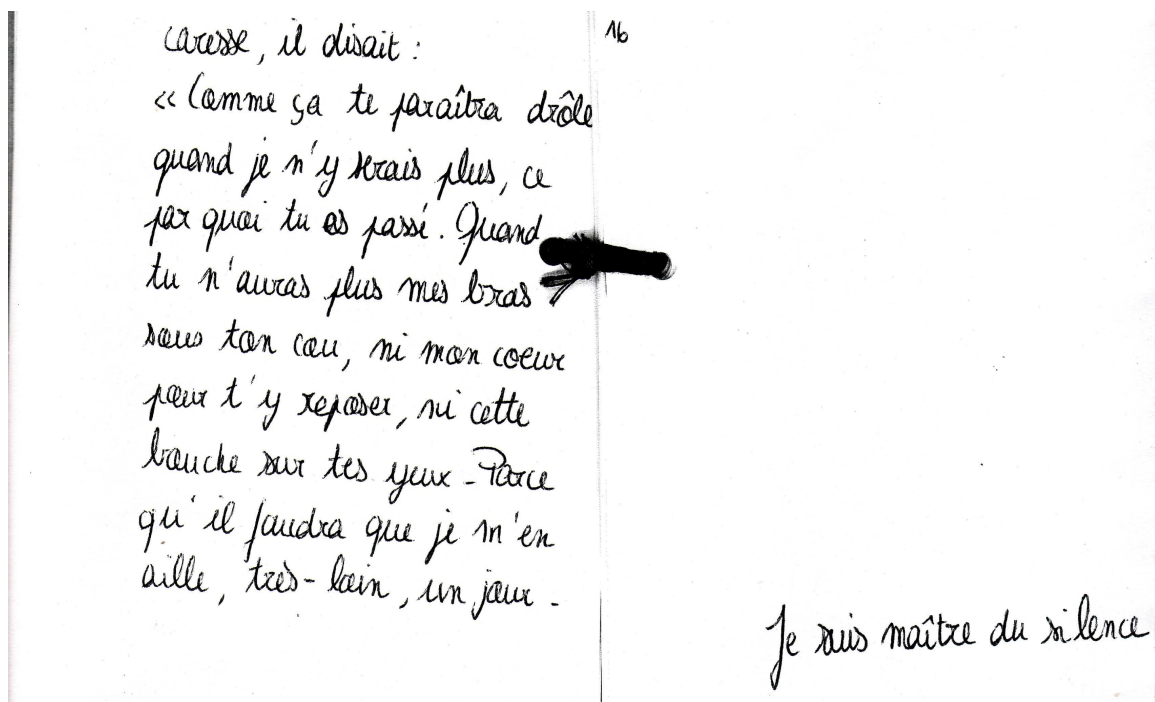 caresse, il disait :
« Comme ça te paraîtra drôle
quand je n'y serais plus, ce
par quoi tu as passé. Quand
tu n'auras plus mes bras
sous ton cou, ni mon coeur
pour t'y reposer, ni cette
bouche sur tes yeux - Parce
qu'il faudra que je m'en
aille, très-loin, un jour -
16
Je suis maître du silence